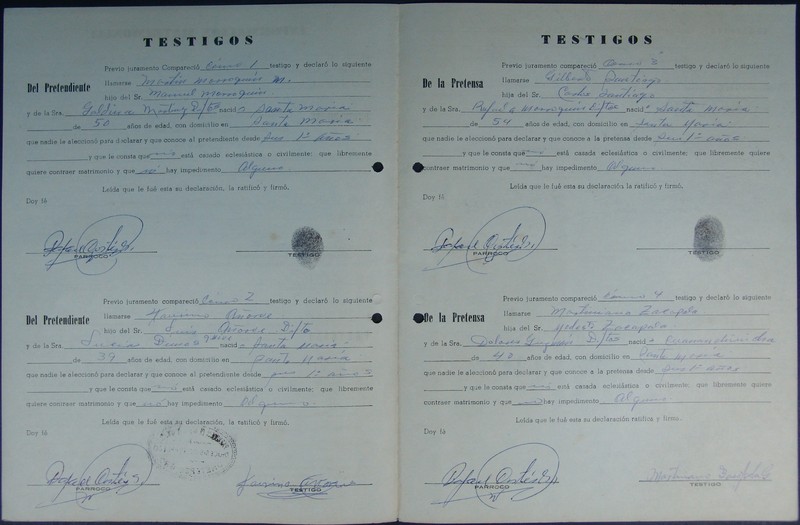 TESTIGOS
Previo juramento Compareció Como 1 testigo y declaró lo siguiente
Del Pretendiente
llamarse Martin Marroquin M.
hijo del Sr. Manuel Marroquin
y de la Sra. nacido Santa Maria
de 50 años de edad, con domicilio en Santa Maria
que nadie le aleccionó para declarar y que conoce al pretendiente desde sus 1os Años
y que le consta que no está casado eclesiástica o civilmente; que libremente
quiere contraer matrimonio y que no hay impedimento Alguno
Leída que le fué esta su declaración, la ratificó y firmó.
Doy fé
Rafael Cortés
PARROCO
TESTIGO
Previo juramento compareció Como 2 testigo y declaró lo siguiente
Del Pretendiente
llamarse
hijo del Sr. Luis Dfto
y de la Sra. nacido Santa Maria
de 39 años de edad, con domicilio en Santa Maria
que nadie le aleccionó para declarar y que conoce al pretendiente desde sus 1os años
y que le consta que no está casado eclesiástica o civilmente; que libremente
quiere contraer matrimonio y que no hay impedimento Alguno
Leída que le fué esta su declaración, la ratificó y firmó.
Doy fé
Rafael Cortés
PARROCO
TESTIGO
TESTIGOS
Previo juramento compareció Como 3 testigo y declaró lo siguiente
De la Pretensa
llamarse Santiago
hija del Sr. Santiago
y de la Sra. Marroquin nacido Santa Maria
de 54 años de edad, con domicilio en Santa Maria
que nadie le aleccionó para declarar y que conoce a la pretensa desde sus 1os años
y que le consta que no está casada eclesiástica o civilmente; que libremente quiere
contraer matrimonio y que no hay impedimento Alguno
Leída que le fué esta su declaración la ratificó y firmó.
Doy fé
Rafael Cortés
PARROCO
TESTIGO
Previo juramento compareció Como 4 testigo y declaró lo siguiente
De la Pretensa
llamarse Zacapala
hija del Sr. Zacapala
y de la Sra. Dolores nacido
de 42 años de edad, con domicilio en Santa Maria
que nadie le aleccionó para declarar y que conoce a la pretensa desde sus 1os Años
y que le consta que no está casada eclesiástica o civilmente; que libremente quiere
contraer matrimonio y que no hay impedimento Alguno
Leída que le fué esta su declaración la ratificó y firmó.
Doy fé
Rafael Cortés
PARROCO
TESTIGO